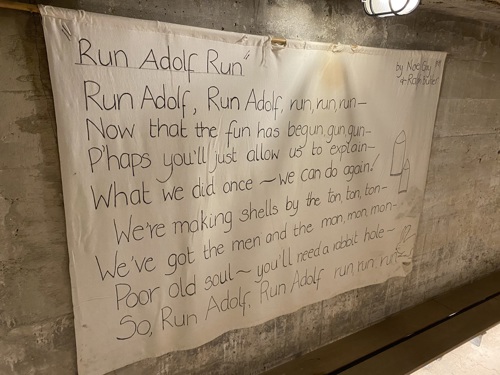 "Run Adolf Run"
by Noel Gay
+ Ralph Butler
Run Adolf, Run Adolf, run, run, run—
Now that the fun has begun, gun, gun—
P'haps you'll just allow us to explain—
What we did once — we can do again!
We're making shells by the ton, ton, ton—
We've got the men and the mon, mon, mon—
Poor old soul — you'll need a rabbit hole—
So, Run Adolf, Run Adolf run, run, run—